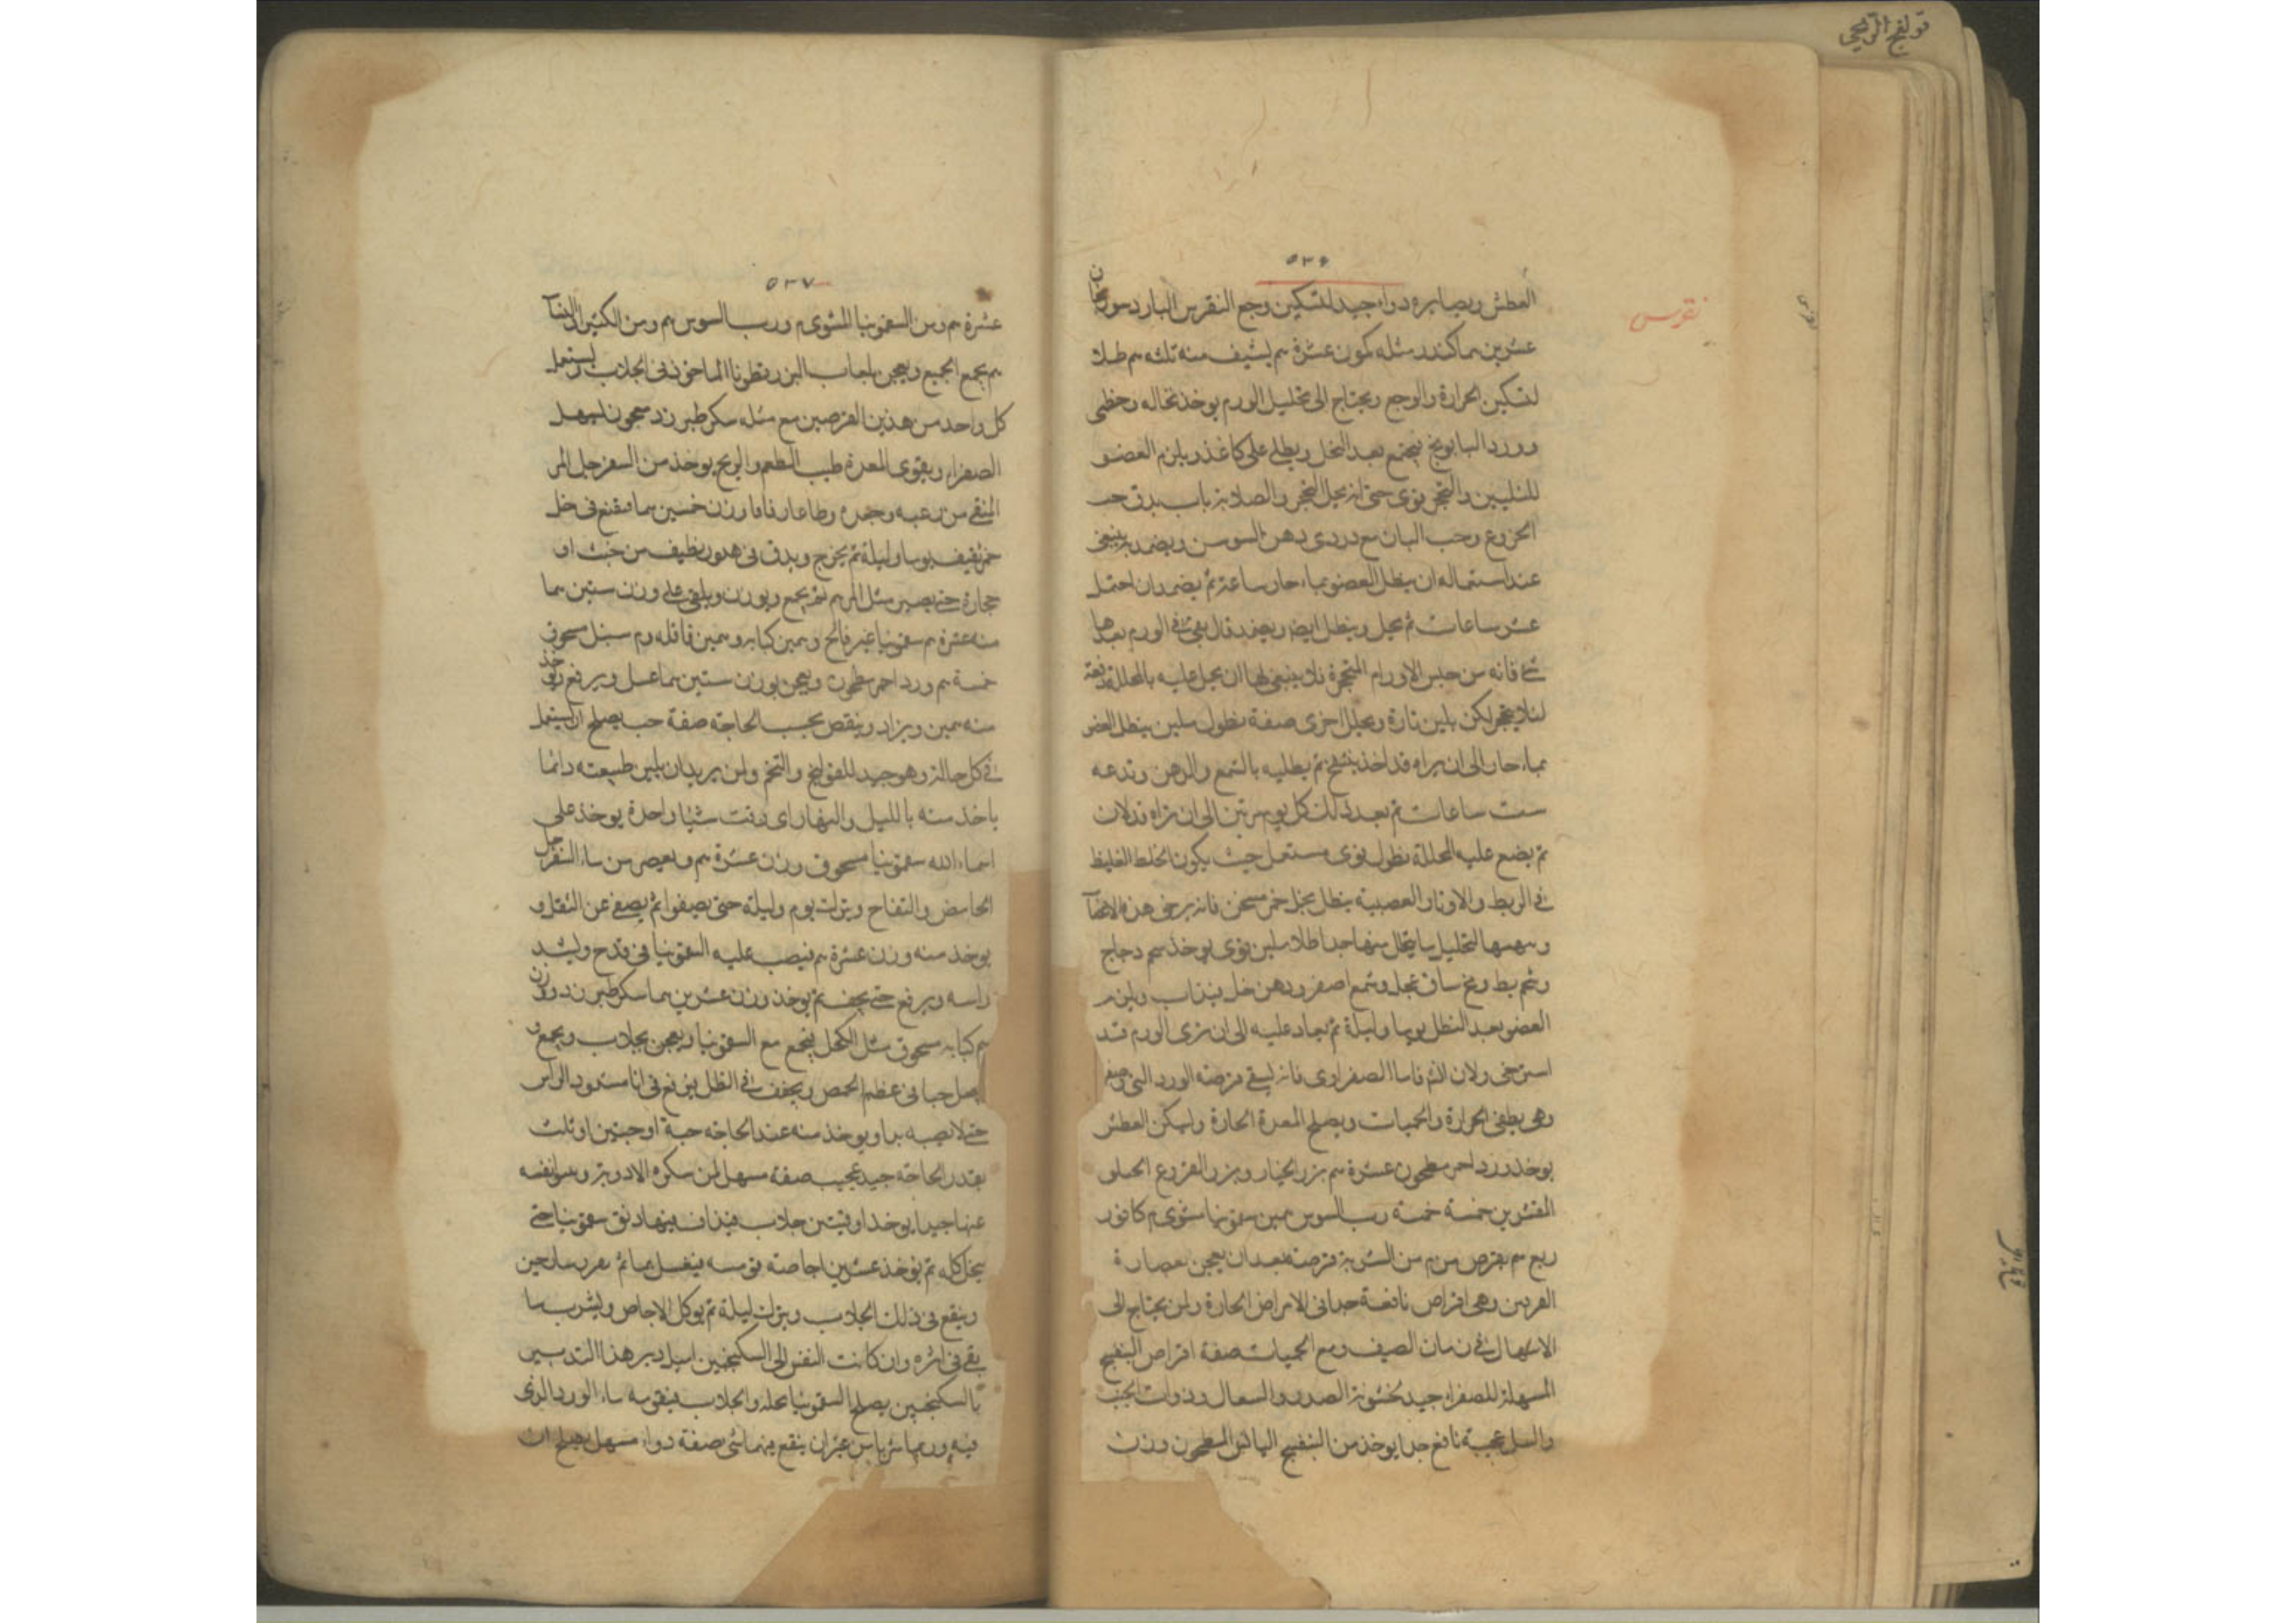 قولنج الريحي
٥٣۶
نقرس
العطش ويصابره دواء جيد لتسكين وجع النقرس البارد سورنجان
عشرين هما كندر مثله كمون عشرة هم يشيف منه ثلثه هم طلا
لتسكين الحرارة والوجع ويحتاج الى تحليل الورم يوخذ نخاله وخطمى
وورد البابونج فيجمع بعد النخل ويطلى على كاغذ ويلزم العضو
للتليين والتحجر قوى حتى انه يحل التحجر والصلابة باب يدق حب
الخروع وحب البان مع دردى دهن السوسن ويضمد به ينبغى
عند استعماله ان ينطل العضو بماء حار ساعة ثم يضمد وان احتمل
عشر ساعات ثم يحل وينطل ايضا ويعيد قال بقى فى الورم بعدها
شئ فانه من جنس الاورام المتحجرة فلا ينبغى لها ان يحل عليه بالمحللة دفعة
لئلا يتحجر لكن يلين تارة ويحلل اخرى صفة نطول ملين ينطل العضو
بماء حار الى ان يراه قد اخذ ينتفخ ثم يطليه بالشمع والدهن وتدعه
ست ساعات ثم بعد ذلك كل يوم مرتين الى ان تراه قد لان
ثم يضع عليه المحللة نطول قوى مستعمل حيث يكون الخلط الغليظ
فى الربط والاوتار العصبية ينطل بخل خمر مسخن فانه يرخى هذه الاعضآ
التحليل ما ينحل منها جدا طلا ملين قوى يوخذ شحم دجاج
وشحم بط ومخ ساق عجل وشمع اصفر ودهن خل فيذاب ويلزم
العضو بعد النطل يوما وليلة ثم يعاد عليه الى ان ترى الورم قد
استرخى ولان الصفراوى فانه يسقى قرصة الورد التى
وهى يطفى الحرارة والحميات ويصلح المعدة الحارة ويسكن العطش
يوخذ ورد احمر مطحون عشرة هم بزر الخيار وبزر القرع الحلى
المقشرين خمسة خمسة رب السوس همين سقمونيا مشوى م كافور
ربع هم يقرص من م من الشربة قرصة بعد ان يعجن بعصارة
وهى اقراص نافعة جدا فى الامراض الحارة ولمن يحتاج الى
الاسهال فى زمان الصيف ومع الحميات صفة اقراص البنفسج
المسهلة للصفراء جيد لخشونة الصدر والسعال وذوات الجنب
والسل عجيبة نافع جدا يوخذ من البنفسج اليابس المطحون وزن
٥٣٧
عشرة هم ومن السقمونيا المشوى م ورب السوس هم ومن الكثيرا البيضآ
هم يجمع الجميع ويعجن بلعاب البزر قطونا الماخوذ فى الجلاب ويستعمل
كل واحد من هذين القرصين مع مثله سكر طبرزد معجون ليسهل
الصفراء ويقوى المعدة طيب الطعم والريح يوخذ من السفرجل المر
المنقى من زغبه وحبه وزن خمسين هما فينقع فى خل
خمر ثقيف يوما وليلة ثم يخرج ويدق فى هاون نظيف من خشب او
حجارة حتى يصير مثل المرهم ثم يجمع ويوزن ويلقى على وزن ستين هما
منه عشرة هم سقمونيا غير فالح وهمين كبابة وهمين قاقله وم سنبل مسحوق
خمسة هم ورد احمر مطحون ويعجن بوزن ستين هما عسل ويرفع ويوخذ
منه همين ويزاد وينقص بحسب الحاجة صفة حب يصلح ان يستعمل
فى كل حالة وهو جيد للقولنج والتخم ولمن يريد ان يلين طبيعته دائما
ياخذ منه بالليل والنهار اى وقت شيا واحدة يوخذ على
اسماء الله سقمونيا مسحوق وزن عشرة هم ويعصر من ماء السفرجل
الحامض والتفاح ويترك يوم وليلة حتى يصفوا ثم يصفى عن الثقل و
يوخذ منه وزن عشرة هم فيصب عليه السقمونيا فى قدح ويشد
راسه ويرفع حتى يجف ثم يوخذ وزن عشرين هما سكر طبرزد ووزن
هم كبابة مسحوق مثل الكحل فيجمع مع السقمونيا ويعجن بجلاب ويجمع و
يعمل حبا فى عظم الحمص ويجفف فى الظل فيرفع فى انا مسدود الراس
حتى لا يصيبه ويوخذ منه عند الحاجة حبة او حبتين او ثلث
بقدر الحاجة جيد عجيب صفة مسهل لمن يكره الادوية
عنها جيدا يوخذ اوقيتين جلاب فيذاف فيها دانق سقمونيا حتى
ينحل كله ثم يوخذ عشرين اجاصة فيغسل بماء ثم
وينقع فى ذلك الجلاب ويترك ليلة ثم يوكل الاجاص ويشرب ما
بقى فى اثره وان كانت النفس الى السكنجبين اميل دبر هذا التدبير
بالسكنجبين يصلح السقمونيا بحله والجلاب فيقويه ماء الورد الذى
فيه وربما ينقع فيهما شئ صفة دواء مسهل يصلح ان